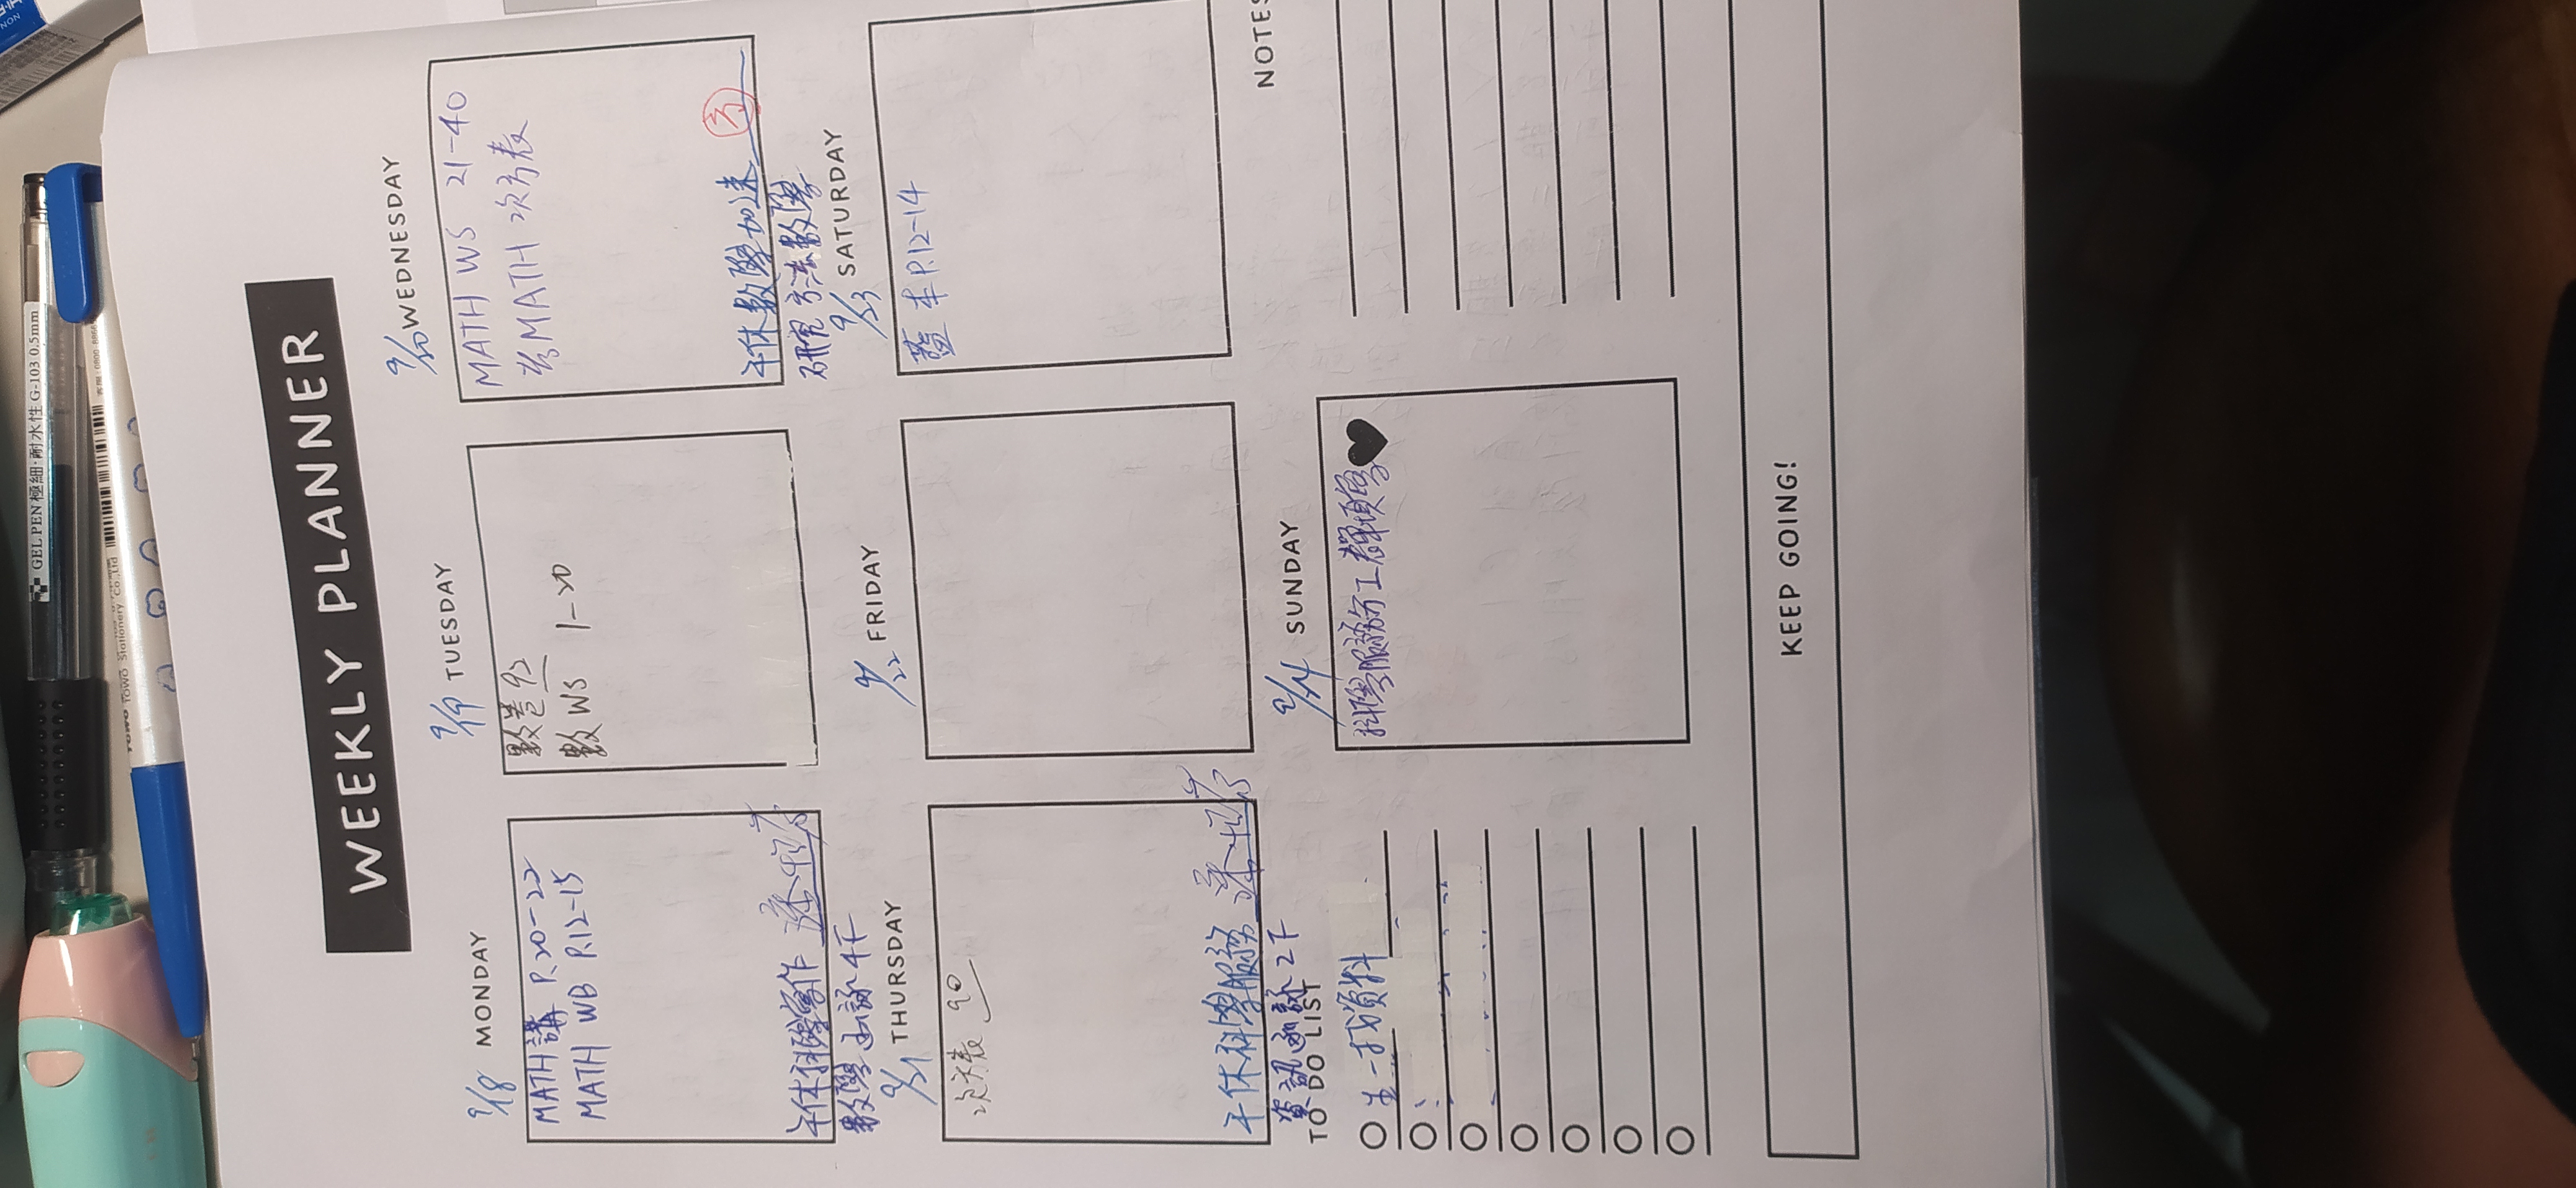 GEL PEN 極細·耐水性 G-103 0.5mm
TOWO TOWO Stationery Co.,Ltd
WEEKLY PLANNER
9/18 MONDAY
MATH講 P.20-22
MATH WB P.12-15
午休科學寫作
數學 函詠 4下
9/19 TUESDAY
數卷 92
數 WS 1-20
9/20 WEDNESDAY
MATH WS 21-40
考MATH 次方表
午休數學加速 方
研究方法數學
9/21 THURSDAY
次方表 90
午休科學服務
資訊 函詠 2下
9/22 FRIDAY
9/23 SATURDAY
藍本 P.12-14
TO DO LIST
找資料
9/24 SUNDAY
科學服務分工表單填寫
NOTES
KEEP GOING!